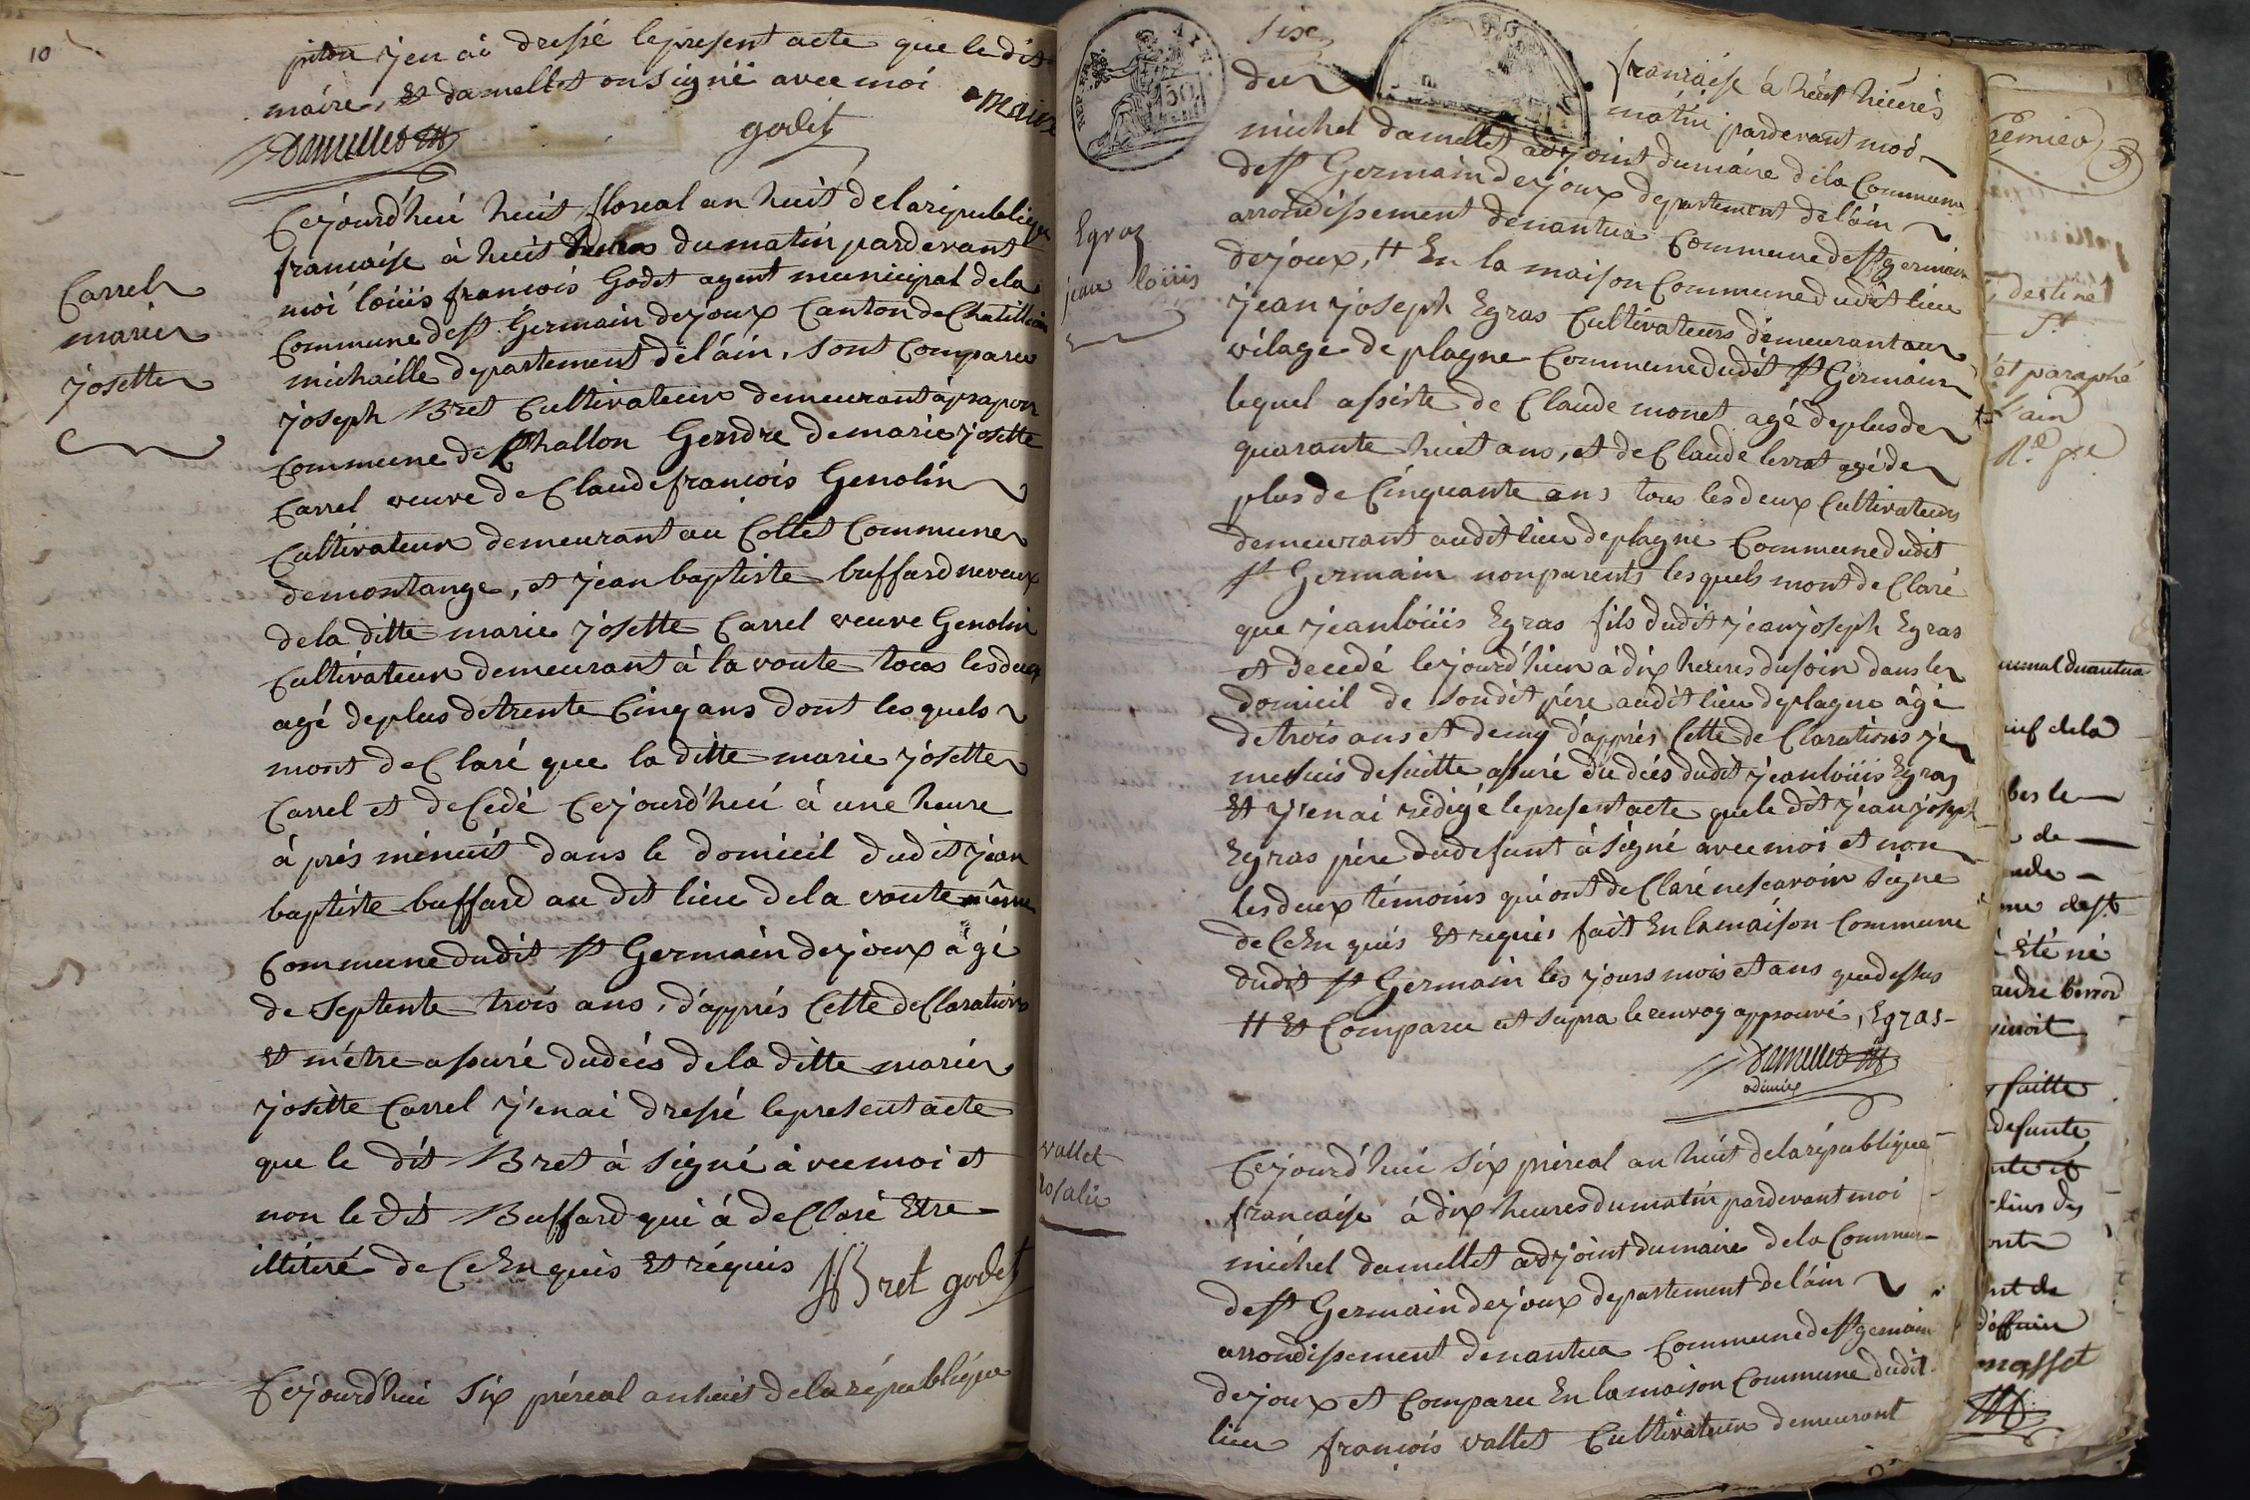 10
piton j'en ai dressé le present acte que le dit
maire, et damellet on signé avec moi
maire
Damellet
godet
Carrel
marie
josette
Cejourd'hui huit floreal an huit de la république
francaise à huit heures du matin pardevant
moi loüis francois Godet agent municipal de la
Commune de st Germain dejoux Canton de Chatillon
michaille departement de l'áin, sont Comparu
joseph Bret Cultivateur demeurant à
Commune de Challon Gendre de marie josette
Carrel veuve de Claude francois Genolin
Cultivateur demeurant au Collet Commune
de montange, et jean baptiste buffard neveux
de la ditte marie josette Carrel veuve Genolin
Cultivateur demeurant à la voute tous les deux
agé de plus de trente Cinq ans dont les quels
mont de Claré que la ditte marie josette
Carrel et de Cedé Cejourd'hui à une heure
à prés minuit dans le domicil dudit jean
baptiste buffard au dit lieu de la voute même
Commune dudit st Germain dejoux àgé
de Septente trois ans, d'apprés Cette de Claration
et m'étre assuré du déés de la ditte marie
josette Carrel j'enai dressé le present acte
que le dit Bret à signé à vec moi et
non le dit Buffard qui à de Claré Etre
illitéré de Ce Enquis Et réquis
Bret godet
Cejourd'hui six préreal an huit de la république
REP. FRA.
50
Sixe
du
francaise à huit heures
matin pardevant moi
michel damellet adjoint du maire de la Commune
de st Germain dejoux departement de l'áin
arrondissement denantua Commune de st germain
dejoux, # En la maison Commune dudit lieu
Egraz
jean loüis
jean joseph Egras Cultivateurs demeurant au
vilage de plagne Commune dudit st Germain
lequel assiste de Claude monet agé de plus de
quarante huit ans, et de Claude levrat agé de
plus de Cinquante ans tous les deux Cultivateurs
demeurant audit lieu de plagne Commune dudit
st Germain non parents les quels mont de Claré
que jean loüis Egras fils dudit jean joseph Egras
et decedé le jourd'hier à dix heures du soir dans le
domicil de son dit pére audit lieu de plagne àgé
de trois ans et demy d'apprés Cette de Clarations je
me suis de suitte assuré du déés dudit jean loüis Egraz
Et j'enai rédigé le present acte que le dit jean joseph
Egras pére du defunt à signé avec moi et non
les deux témoins qui ont de Claré ne scavoir signé
de Ce En quis Et requis fait En la maison Commune
dudit st Germain les jours mois et ans que dessus
# Et Comparu et supra le renvoy approuvé, Egras
Damellet
adjoint
vallet
rosalie
Cejourd'hui six préreal an huit de la république
francaise à dix heures du matin pardevant moi
michel damellet adjoint du maire de la Commune
de st Germain dejoux departement de l'áin
arrondissement denantua Commune de st germain
dejoux et Comparu En la maison Commune dudit
lieu francois vallet Cultivateur demeurant
premier
destiné
et paraphé
l'ain
de la
de
été né
faitte
defunte